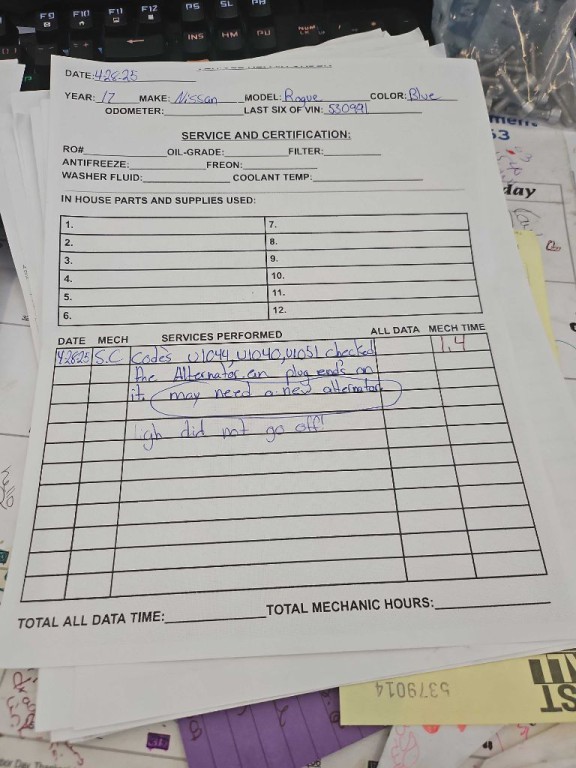 F9 F10 F11 F12 PS SL PB
INS HM PU
DATE: 4-28-25
YEAR: 17 MAKE: Nissan MODEL: Rogue COLOR: Blue
ODOMETER: LAST SIX OF VIN: 530991
SERVICE AND CERTIFICATION:
RO# OIL-GRADE: FILTER:
ANTIFREEZE: FREON:
WASHER FLUID: COOLANT TEMP:
IN HOUSE PARTS AND SUPPLIES USED:
1. 7.
2. 8.
3. 9.
4. 10.
5. 11.
6. 12.
DATE MECH SERVICES PERFORMED ALL DATA MECH TIME
42825 S.C Codes U1044, U1040, U1051 checked 1.4
the Alternator an plug ends on
it. may need a new alternator
Ligh did not go off!
TOTAL ALL DATA TIME: TOTAL MECHANIC HOURS:
53
day
5379014
ST